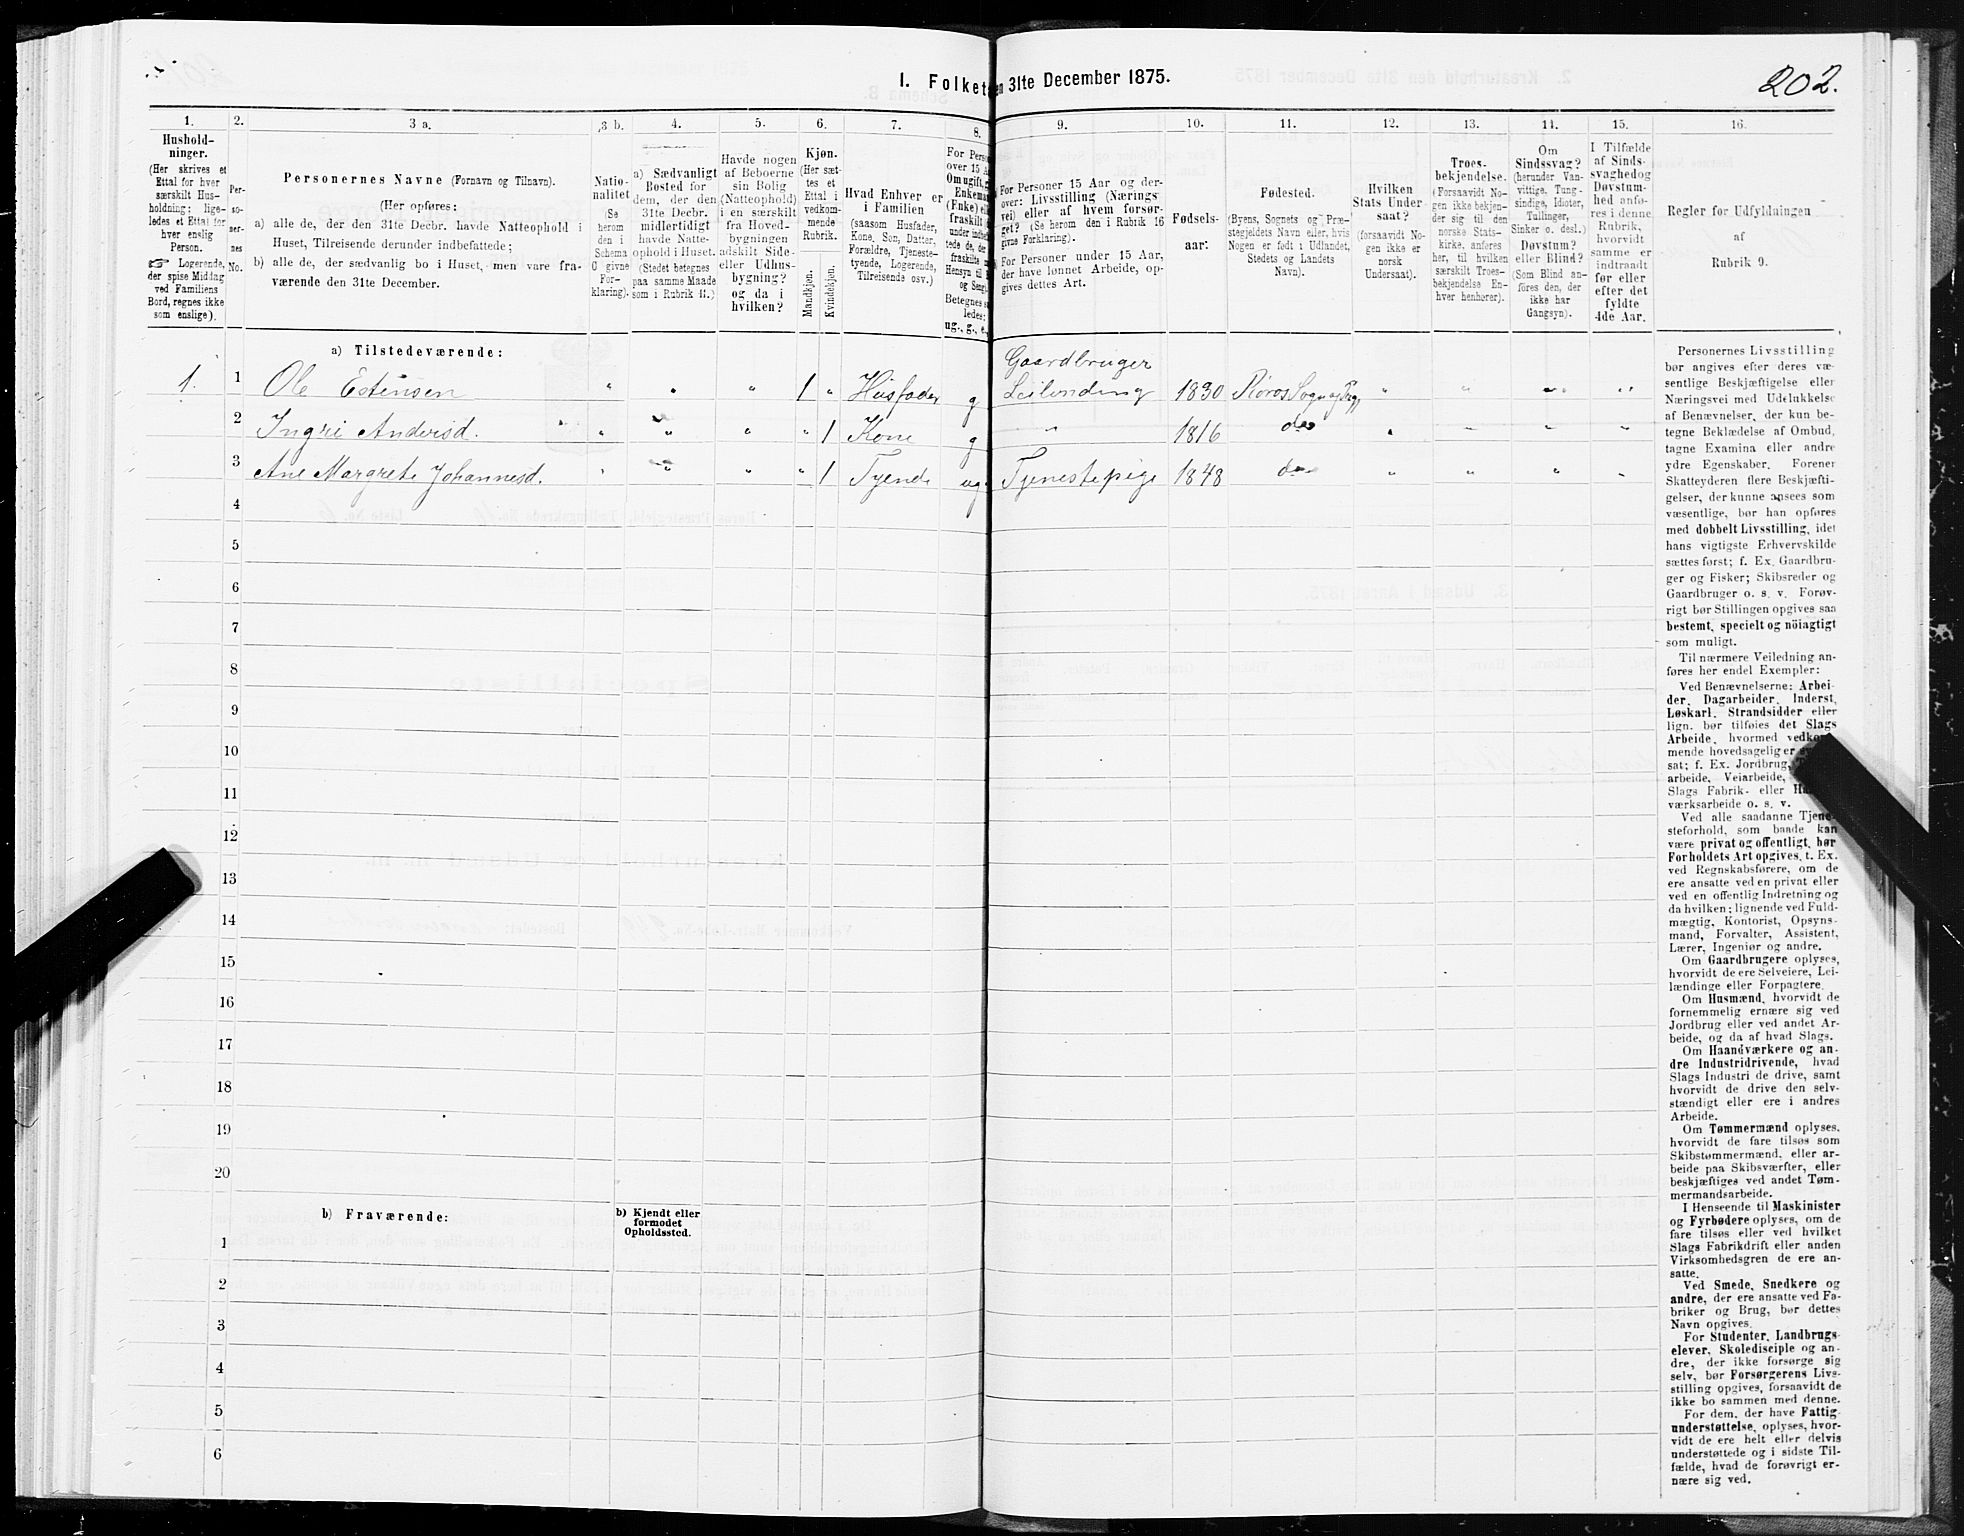 I. Folket en 31te December 1875.
202.
1.
Hushold-
ninger.
(Her skrives et
Ettal for hver
særskilt Hus-
holdning; lige-
ledes et Ettal for
hver enslig
Person.
☞ Logerende,
der spise Middag
ved Familiens
Bord, regnes ikke
som enslige).
2.
Per-
so-
ner-
nes
No.
3 a.
Personernes Navne (Fornavn og Tilnavn).
(Her opføres:
a) alle de, der den 31te Decbr. havde Natteophold i
Huset, Tilreisende derunder indbefattede;
b) alle de, der sædvanlig bo i Huset, men vare fra-
værende den 31te December.
3 b.
Natio-
nalitet
(Se
herom
den i
Schema
C givne
For-
klaring).
4.
a) Sædvanligt
Bosted for
dem, der den
31te Decbr.
midlertidigt
havde Natte-
ophold i Huset.
(Stedet betegnes
paa samme Maade
som i Rubrik 11.)
5.
Havde nogen
af Beboerne
sin Bolig
(Natteophold)
i en særskilt
fra Hoved-
bygningen
adskilt Side-
eller Udhus-
bygning?
og da i
hvilken?
6.
Kjøn.
(Her sæt-
tes et
Ettal i
vedkom-
mende
Rubrik.
Mandkjøn.
Kvindekjøn.
7.
Hvad Enhver er
i Familien
(saasom Husfader,
Kone, Søn, Datter,
Forældre, Tjeneste-
tyende, Logerende,
Tilreisende osv.)
8.
For Pers
over 15 A
Om ugift, g
Enkema
(Enke) el
fraskilt
under indb
tede de, d
fraskilte
Hensyn til
og Seng
Betegnes s
ledes:
ug., g., e.,
9.
For Personer 15 Aar og der-
over: Livsstilling (Nærings-
vei) eller af hvem forsør-
get? (Se herom den i Rubrik 16
givne Forklaring).
For Personer under 15 Aar,
der have lønnet Arbeide, op-
gives dettes Art.
10.
Fødsels-
aar:
11.
Fødested.
(Byens, Sognets og Præ-
stegjeldets Navn eller, hvis
Nogen er født i Udlandet,
Stedets og Landets
Navn).
12.
Hvilken
Stats Under-
saat?
(forsaavidt No-
gen ikke er
norsk
Undersaat).
13.
Troes-
bekjendelse.
(Forsaavidt No-
gen ikke bekjen-
der sig til den
norske Stats-
kirke, anføres
her, til hvilken
særskilt Troes-
bekjendelse En-
hver henhører).
14.
Om
Sindssvag?
(herunder Van-
vittige, Tung-
sindige, Idioter,
Tullinger,
Sinker o. desl.)
Døvstum?
eller Blind?
(Som Blind an-
føres den, der
ikke har
Gangsyn).
15.
I Tilfælde
af Sinds-
svaghed og
Døvstum-
hed anfø-
res i denne
Rubrik,
hvorvidt
samme er
indtraadt
før eller
efter det
fyldte
4de Aar.
16.
Regler for Udfyldningen
af
Rubrik 9.
a) Tilstedeværende:
1. 1 Ole Estensen " " " 1 " Husfader g Gaardbruger
Leilending 1830 Røros Sogn og Prgj. " " " "
2 Ingri Andersd. " " " " 1 Kone g " 1816 do " " " "
3 Ane Margrete Johannesd. " " " " 1 Tyende ug. Tjenestepige 1848 do " " " "
4
5
6
7
8
9
10
11
12
13
14
15
16
17
18
19
20
b) Fraværende:
b) Kjendt eller
formodet
Opholdssted.
1
2
3
4
5
6
Personernes Livsstilling
bør angives efter deres væ-
sentlige Beskjæftigelse eller
Næringsvei med Udelukkelse
af Benævnelser, der kun be-
tegne Beklædelse af Ombud,
tagne Examina eller andre
ydre Egenskaber. Forener
Skatteyderen flere Beskjæfti-
gelser, der kunne ansees som
væsentlige, bør han opføres
med dobbelt Livsstilling, idet
hans vigtigste Erhvervskilde
sættes først; f. Ex. Gaardbru-
ger og Fisker; Skibsreder og
Gaardbruger o. s. v. Forøv-
rigt bør Stillingen opgives saa
bestemt, specielt og nöiagtigt
som muligt.
Til nærmere Veiledning an-
føres her endel Exempler:
Ved Benævnelserne: Arbei-
der, Dagarbeider, Inderst,
Løskarl, Strandsidder eller
lign. bør tilføies det Slags
Arbeide, hvormed vedkom-
mende hovedsagelig er sys
sat; f. Ex. Jordbrug,
arbeide, Veiarbeide,
Slags Fabrik- eller Ha
værksarbeide o. s. v.
Ved alle saadanne Tjene-
steforhold, som baade kan
være privat og offentligt, bør
Forholdets Art opgives, t. Ex.
ved Regnskabsførere, om de
ere ansatte ved en privat eller
ved en offentlig Indretning og
da hvilken; lignende ved Fuld-
mægtig, Kontorist, Opsyns-
mand, Forvalter, Assistent,
Lærer, Ingeniør og andre.
Om Gaardbrugere oplyses,
hvorvidt de ere Selveiere, Lei-
lændinge eller Forpagtere.
Om Husmænd, hvorvidt de
fornemmelig ernære sig ved
Jordbrug eller ved andet Ar-
beide, og da af hvad Slags.
Om Haandværkere og an-
dre Industridrivende, hvad
Slags Industri de drive, samt
hvorvidt de drive den selv-
stændigt eller ere i andres
Arbeide.
Om Tømmermænd oplyses,
hvorvidt de fare tilsøs som
Skibstømmermænd, eller ar-
beide paa Skibsværfter, eller
beskjæftiges ved andet Tøm-
mermandsarbeide.
I Henseende til Maskinister
og Fyrbødere oplyses, om de
fare tilsøs eller ved hvilket
Slags Fabrikdrift eller anden
Virksomhedsgren de ere an-
satte.
Ved Smede, Snedkere og
andre, der ere ansatte ved Fa-
briker og Brug, bør dettes
Navn opgives.
For Studenter, Landbrugs-
elever, Skoledisciple og an-
dre, der ikke forsørge sig
selv, bør Forsørgerens Livs-
stilling opgives, forsaavidt de
ikke bo sammen med denne.
For dem, der have Fattig-
understøttelse, oplyses, hvor-
vidt de ere helt eller delvis
understøttede og i sidste Til-
fælde, hvad de forøvrigt er-
nære sig ved.